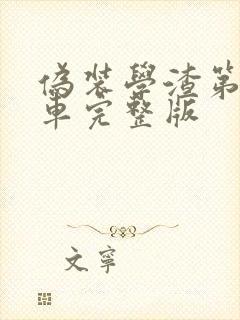 偽裝學渣第
車完整版
文寧